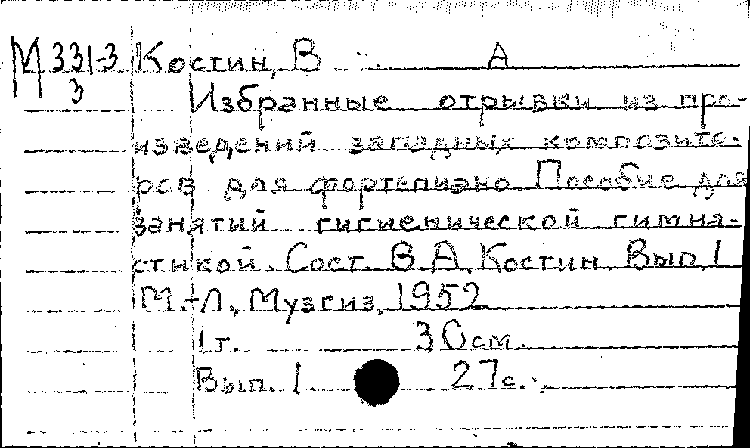 М 331-3 Костин, В А
3
Избранные отрывки из про-
изведений западных композито-
ров для фортепиано Пособие для
занятий гигиенической гимна-
стикой. Сост. В.А. Костин. Вып. 1
М.-Л., Музгиз, 1952
1т. 30см.
Вып. 1 27с.